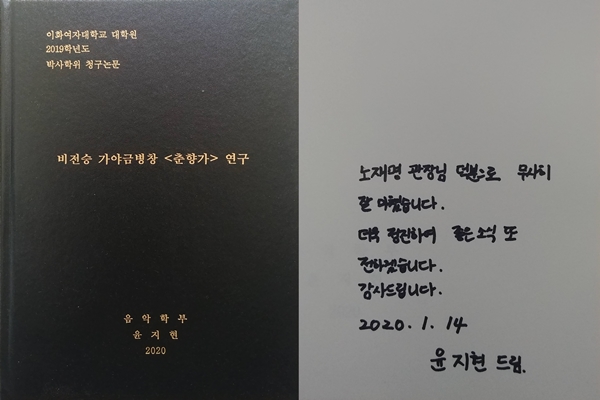 이화여자대학교 대학원
2019학년도
박사학위 청구논문
비전승 가야금병창 <춘향가> 연구
음악학부
윤지현
2020
노재명 관장님 덕분으로 무사히
잘 마쳤습니다.
더욱 정진하여 좋은 소식 또
전하겠습니다.
감사드립니다.
2020. 1. 14
윤지현 드림.